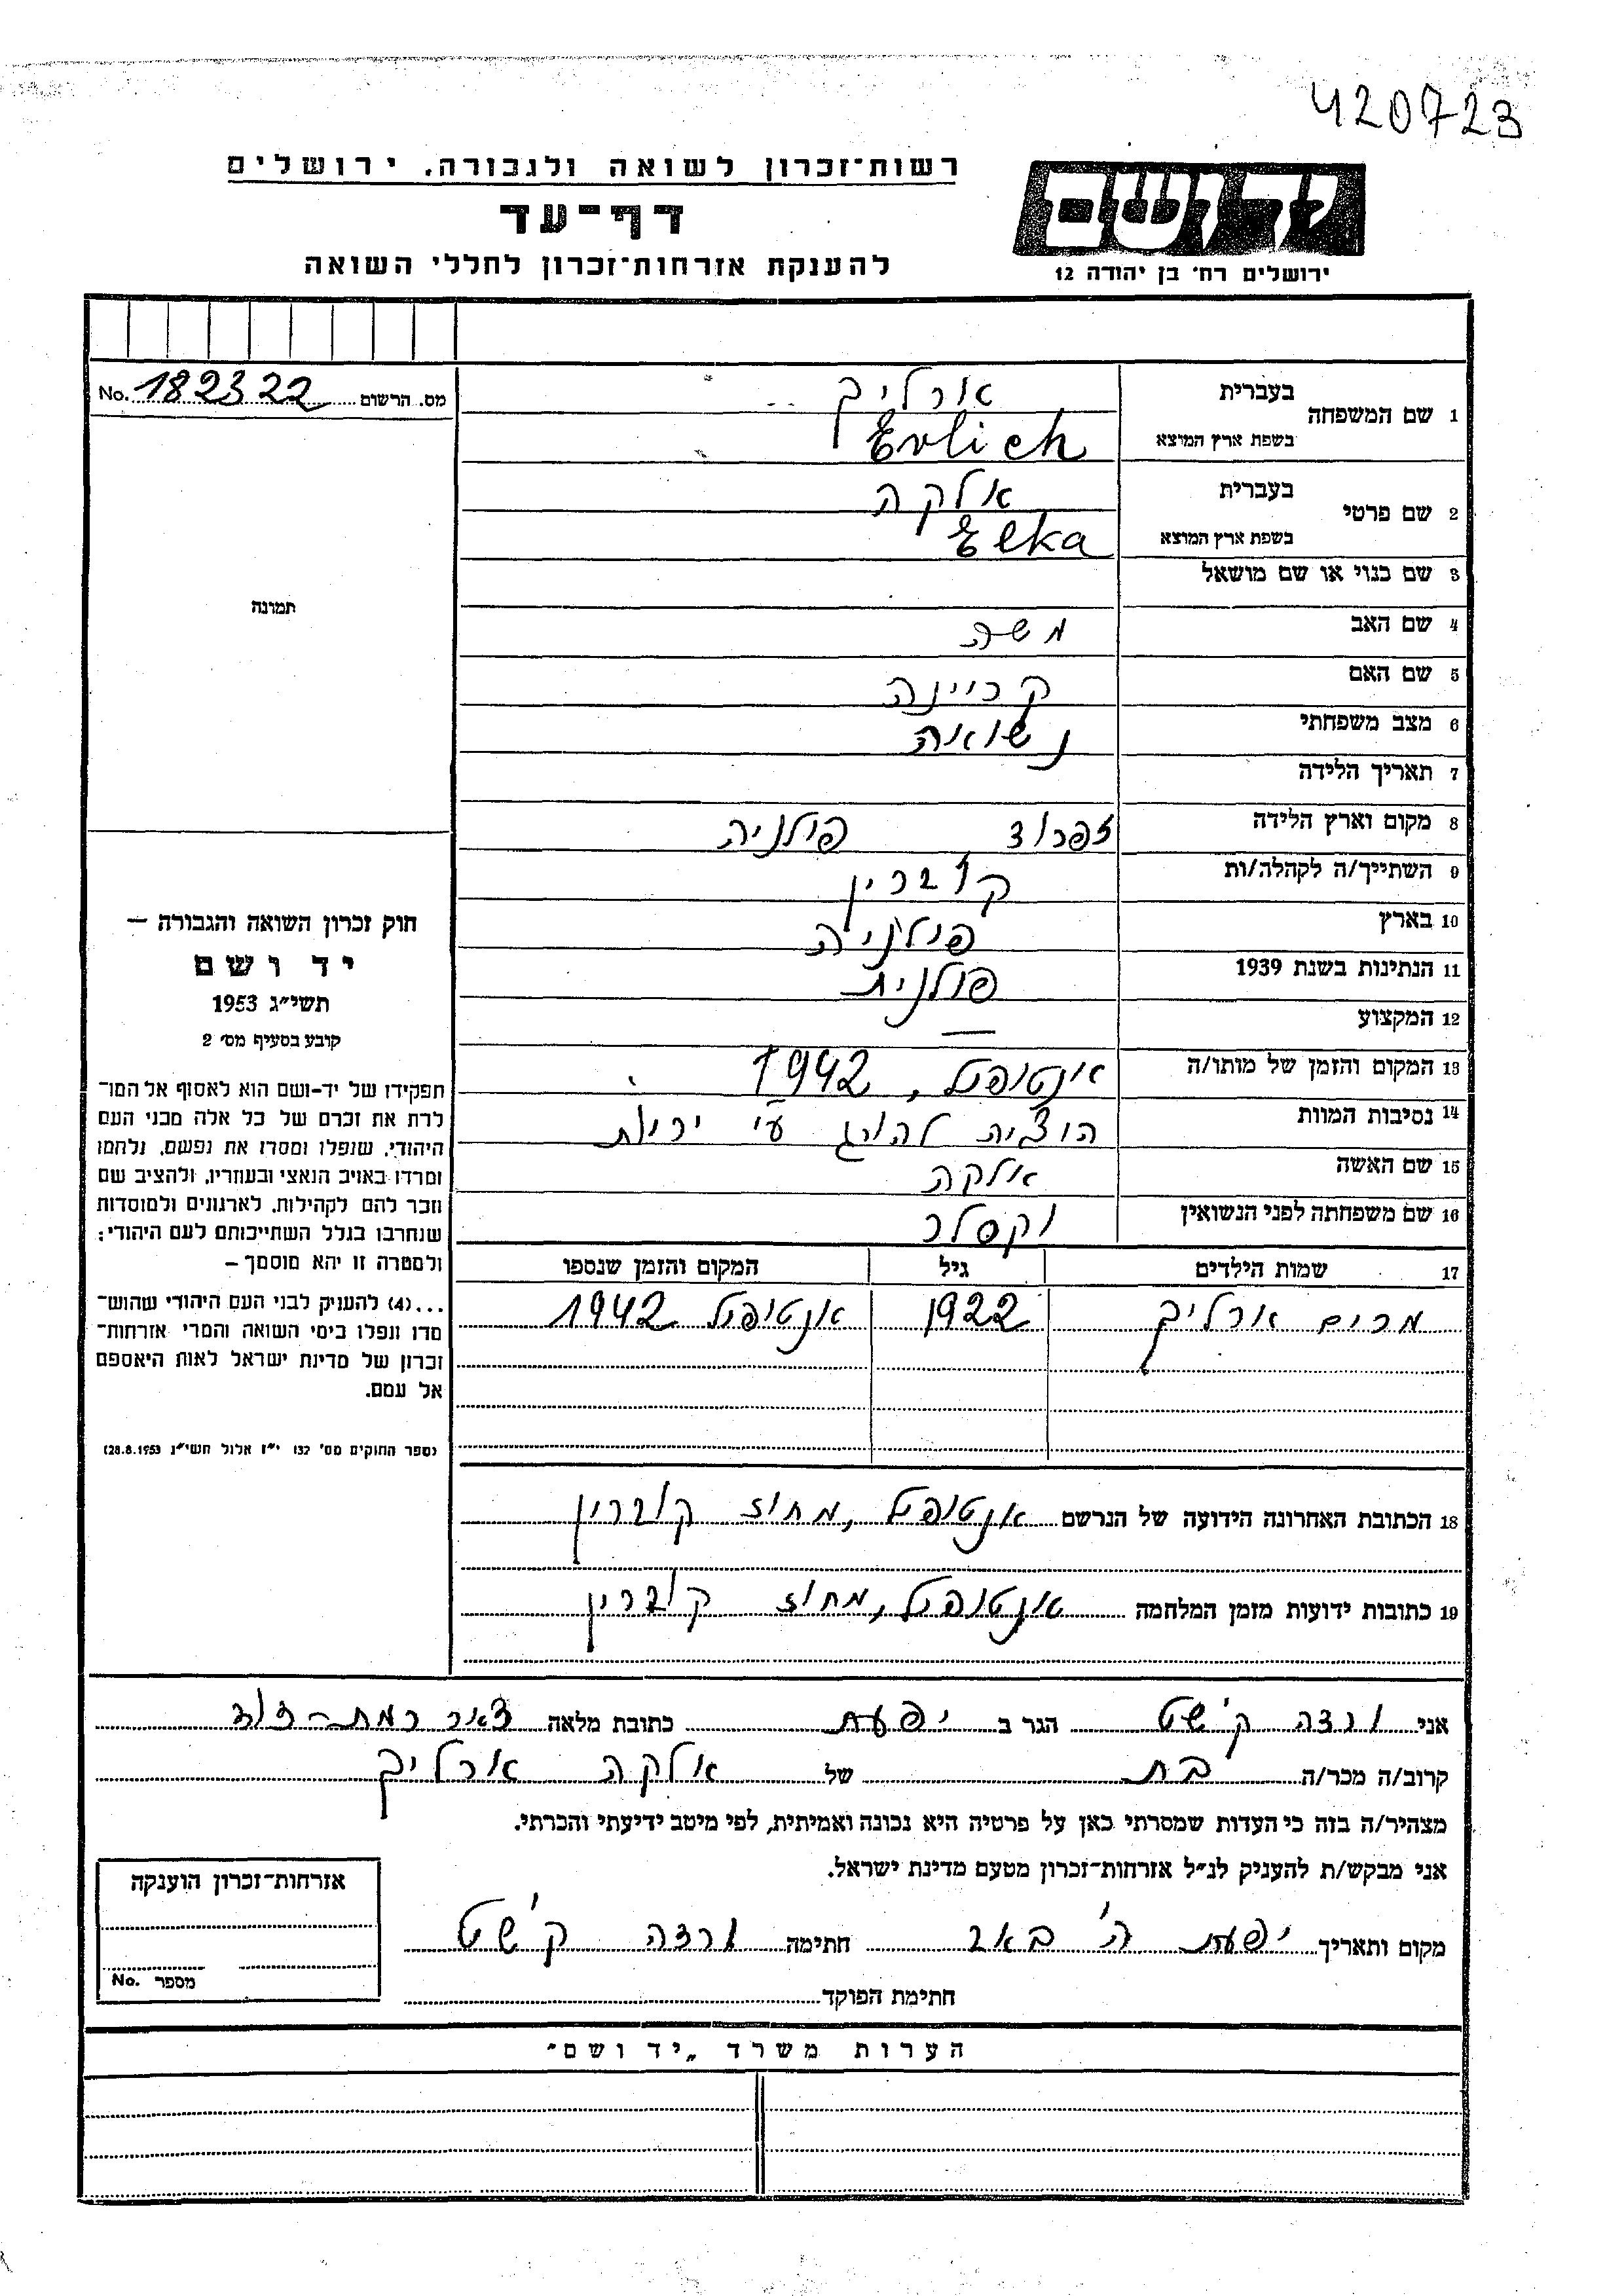 420723
רשות־זכרון לשואה ולגבורה, ירושלים
דף־עד
להענקת אזרחות־זכרון לחללי השואה
יד ושם
ירושלים רח' בן יהודה 12
מס. הרשום 182322 No.
1 שם המשפחה בעברית ארליך
בשפת ארץ המוצא Erlich
2 שם פרטי בעברית אלקה
בשפת ארץ המוצא Elka
3 שם כנוי או שם מושאל
4 שם האב משה
5 שם האם קריינה
6 מצב משפחתי נשואה
7 תאריך הלידה
8 מקום וארץ הלידה זפרוד פולניה
9 השתייך/ה לקהלה/ות קוברין
10 בארץ פולניה
11 הנתינות בשנת 1939 פולנית
12 המקצוע —
13 המקום והזמן של מותו/ה אנטופול, 1942
14 נסיבות המוות הוצאה להורג ע"י יריות
15 שם האשה אלקה
16 שם משפחתה לפני הנשואין וקסלר
17 שמות הילדים גיל המקום והזמן שנספו
מרים ארליך 1922 אנטופול 1942
18 הכתובת האחרונה הידועה של הנרשם אנטופול, מחוז קוברין
19 כתובות ידועות מזמן המלחמה אנטופול, מחוז קוברין
תמונה
חוק זכרון השואה והגבורה —
יד ושם
תשי"ג 1953
קובע בסעיף מס' 2
תפקידו של יד־ושם הוא לאסוף אל המו־
לדת את זכרם של כל אלה מבני העם
היהודי, שנפלו ומסרו את נפשם, נלחמו
ומרדו באויב הנאצי ובעוזריו, ולהציב שם
וזכר להם לקהילות, לארגונים ולמוסדות
שנחרבו בגלל השתייכותם לעם היהודי;
ולמטרה זו יהא מוסמך —
...(4) להעניק לבני העם היהודי שהוש־
מדו ונפלו בימי השואה והמרי אזרחות־
זכרון של מדינת ישראל לאות היאספם
אל עמם.
(ספר החוקים מס' 132 י"ז אלול תשי"ג 28.8.1953)
אני ורדה קשט הגר ב יפעת כתובת מלאה דאר רמת-דוד
קרוב/ה מכר/ה בת של אלקה ארליך
מצהיר/ה בזה כי העדות שמסרתי כאן על פרטיה היא נכונה ואמיתית, לפי מיטב ידיעתי והכרתי.
אני מבקש/ת להעניק לנ"ל אזרחות־זכרון מטעם מדינת ישראל.
מקום ותאריך יפעת ה' באב חתימה ורדה קשט
חתימת הפוקד
אזרחות־זכרון הוענקה
מספר No.
הערות משרד „יד ושם"